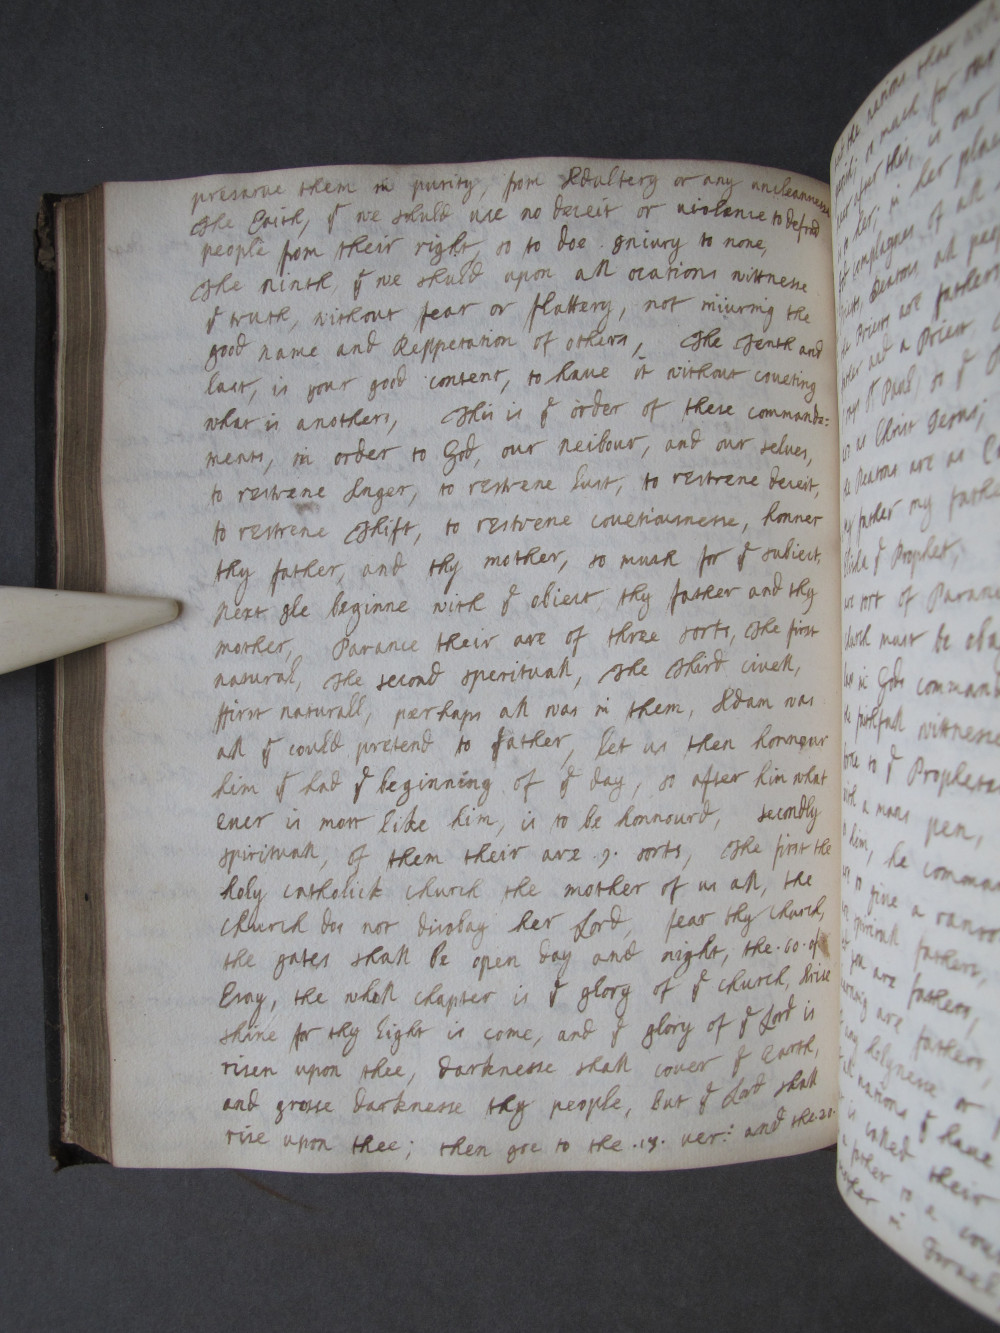 preserve them in purity, from Adultery or any uncleannesse
The Eaith, yt we should use no deceit or violence to defrad
people from their right, so to doe iniury to none,
The ninth, yt we shuld upon all ocations wittnesse
ye truth, without fear or flattery, not miuring the
good name and Repperation of others, The Tenth and
last, is your good content, to have it without coveting
what is anothers, This is ye order of these commande=
ments, in order to God, our neibour, and our selves,
to restrene Anger, to restrene lust, to restrene deceit,
to restrene Thift, to restrene covetiousnesse, honner
thy father, and thy mother, so mush for ye subiect,
next Ile beginne with ye obiect thy father and thy
mother, Parance their are of three sorts, The first
natural, The second speritual, The Third civell,
ffirst naturall, perhaps all was in them, Adam was
all yt could pretend to father, let us then honnour
him yt had ye beginning of ye day, so after him what
ever is most like him, is to be honnourd, secondly
spirituall, of them their are .9. sorts, The first the
holy catholick church the mother of us all, the
church dos not disobay her Lord, fear thy church,
the gates shall be open day and night, the .60. of
Esay, the wholl chapter is ye glory of ye church, Arise
shine for thy light is come, and ye glory of ye Lord is
risen upon thee, darknesse shall cover ye Earth,
and grosse darknesse thy people, but ye Lord shall
rise upon thee; then goe to the .19. ver: and the .20.
of Paul, so ye
as Christ Iesus;
my father my father
Elisha ye Prophet,
sort of Parance
church must be obay
in Gods command
faithfull wittnesse
to ye Prophets
with a mans pen,
him, he comman
to give a ranso
spirituall fathers,
you are fathers,
are fathers,
holynesse or
nations yt have
is called their
a father to a
mother in Israel